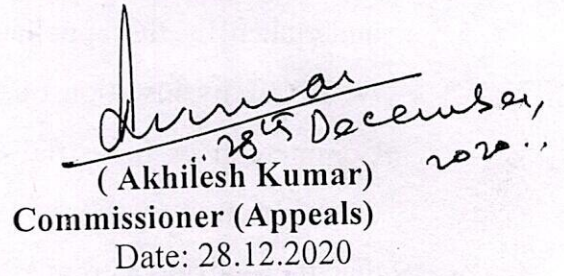 Kumar
28th December,
2020..
( Akhilesh Kumar)
Commissioner (Appeals)
Date: 28.12.2020